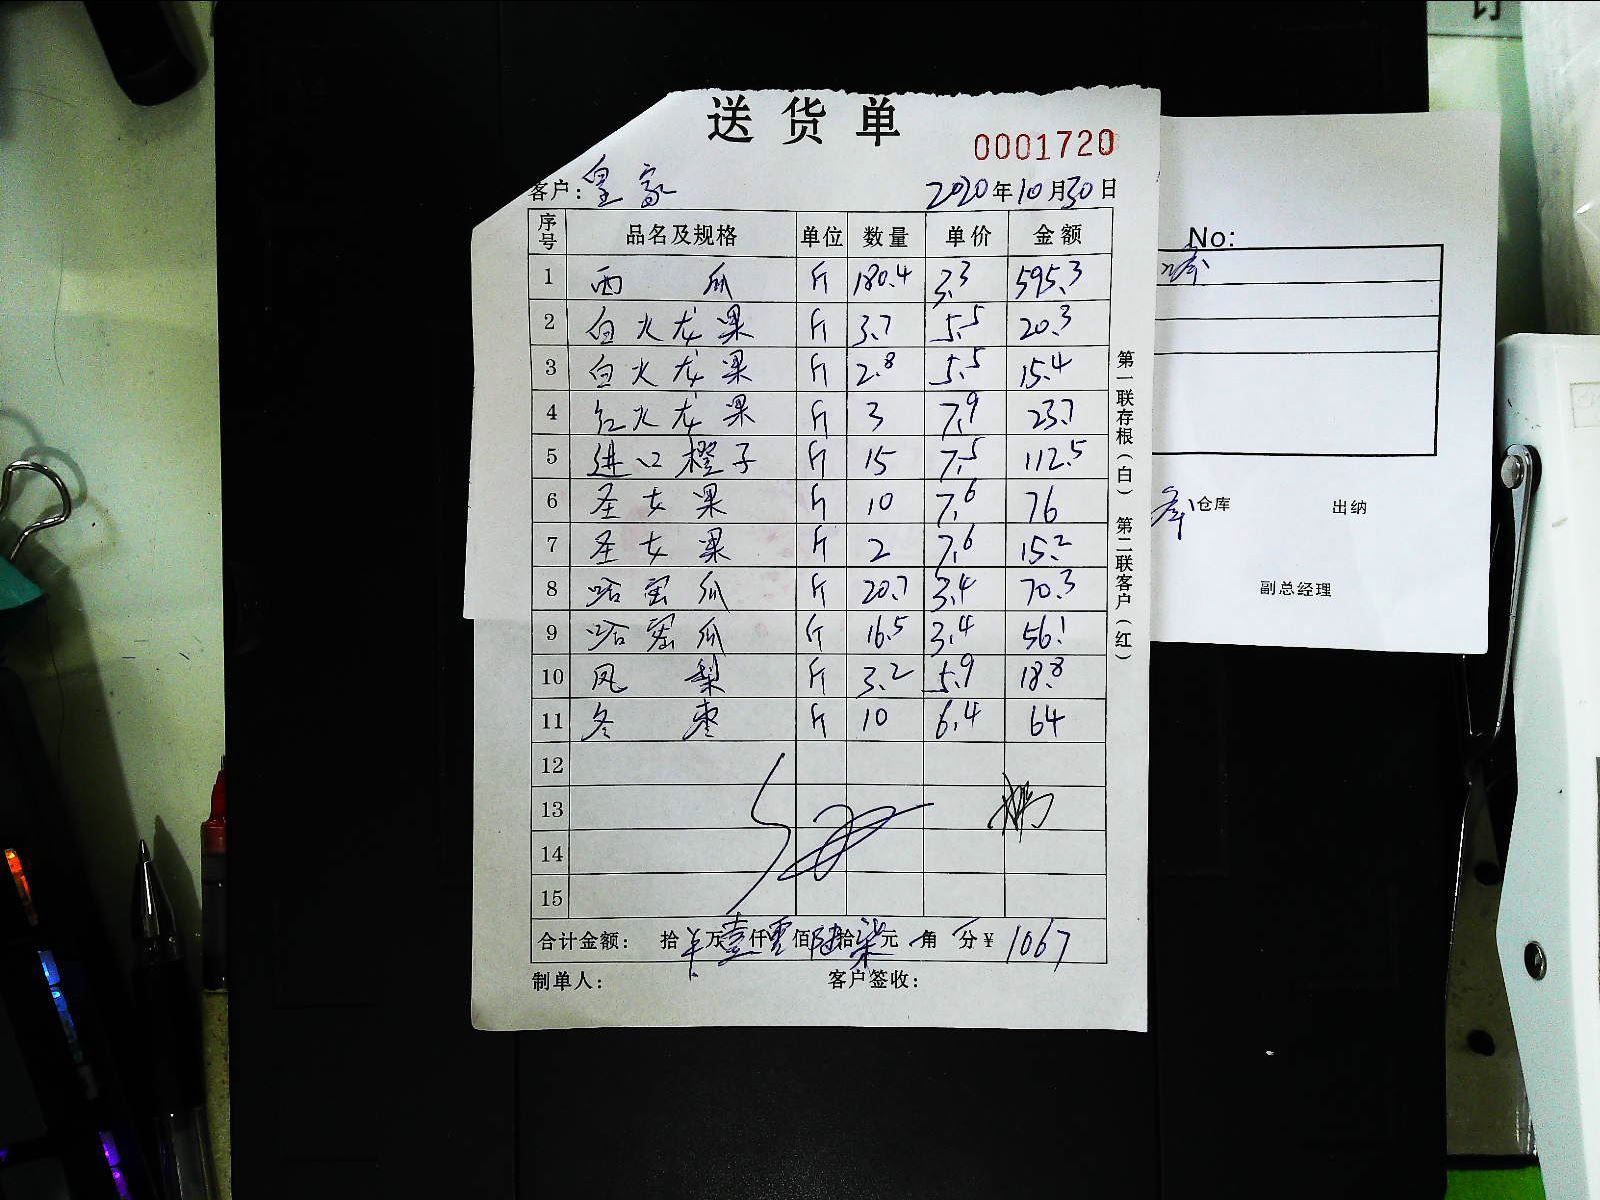 订
送货单
0001720
客户: 皇家 2020年10月30日
序号 品名及规格 单位 数量 单价 金额
1 西瓜 斤 180.4 3.3 595.3
2 白火龙果 斤 3.7 5.5 20.3
3 白火龙果 斤 2.8 5.5 15.4
4 红火龙果 斤 3 7.9 23.7
5 进口橙子 斤 15 7.5 112.5
6 圣女果 斤 10 7.6 76
7 圣女果 斤 2 7.6 15.2
8 哈密瓜 斤 20.7 3.4 70.3
9 哈密瓜 斤 16.5 3.4 56.1
10 凤梨 斤 3.2 5.9 18.8
11 冬枣 斤 10 6.4 64
12
13
14
15
合计金额: 拾 万壹仟零佰陆拾柒元 角 分 ¥ 1067
制单人: 客户签收:
第一联存根(白) 第二联客户(红)
No:
仓库 出纳
副总经理